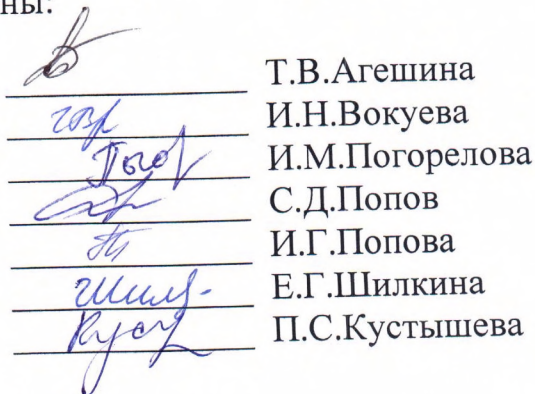 ны:
Т.В.Агешина
И.Н.Вокуева
И.М.Погорелова
С.Д.Попов
И.Г.Попова
Е.Г.Шилкина
П.С.Кустышева